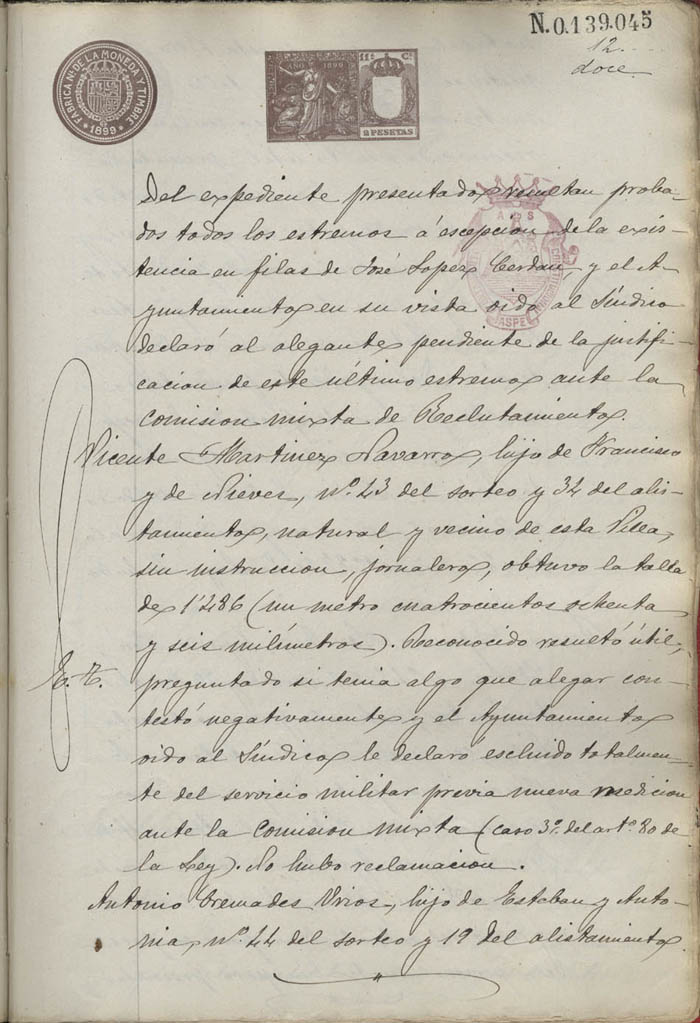 N.0.139.045
12
doce
FABRICA Nal. DE LA MONEDA Y TIMBRE
* 1899 *
AÑO 1899
11ª C.
2 PESETAS
ASPE
Del expediente presentado resultan proba-
dos todos los estremos á escepcion de la exis-
tencia en filas de José Lopez Cerdan, y el A-
yuntamiento en su vista oido al Síndico
declaró al alegante pendiente de la justifi-
cacion de este último estremo ante la
Comision mixta de Reclutamiento.
Vicente Martinez Navarro, hijo de Francisco
y de Nieves, nº 43 del sorteo y 34 del alis-
tamiento, natural y vecino de esta Villa,
sin instruccion, jornalero, obtuvo la talla
de 1'486 (un metro cuatrocientos ochenta
y seis milímetros). Reconocido resultó útil,
E. T.
preguntado si tenia algo que alegar con-
testó negativamente y el Ayuntamiento
oido al Síndico le declaró escluido totalmen-
te del servicio militar previa nueva medicion
ante la Comision mixta (caso 3º del artº 80 de
la Ley). No hubo reclamacion.
Antonio Cremades Urios, hijo de Esteban y Anto-
nia, nº 44 del sorteo y 19 del alistamiento